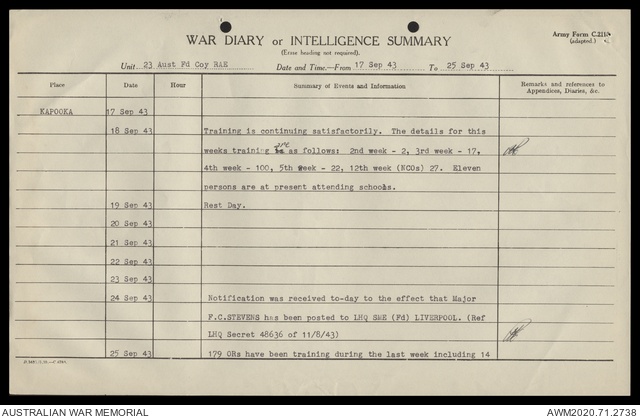 Army Form C.2118.
(adapted.)
WAR DIARY or INTELLIGENCE SUMMARY
(Erase heading not required).
Unit 23 Aust Fd Coy RAE Date and Time.—From 17 Sep 43 To 25 Sep 43
Place Date Hour Summary of Events and Information Remarks and references to Appendices, Diaries, &c.
KAPOOKA 17 Sep 43
18 Sep 43 Training is continuing satisfactorily. The details for this
weeks training are as follows: 2nd week - 2, 3rd week - 17,
4th week - 100, 5th week - 22, 12th week (NCOs) 27. Eleven
persons are at present attending schools.
19 Sep 43 Rest Day.
20 Sep 43
21 Sep 43
22 Sep 43
23 Sep 43
24 Sep 43 Notification was received to-day to the effect that Major
F.C.STEVENS has been posted to LHQ SME (Fd) LIVERPOOL. (Ref
LHQ Secret 48636 of 11/8/43)
25 Sep 43 179 ORs have been training during the last week including 14
AUSTRALIAN WAR MEMORIAL
AWM2020.71.2738